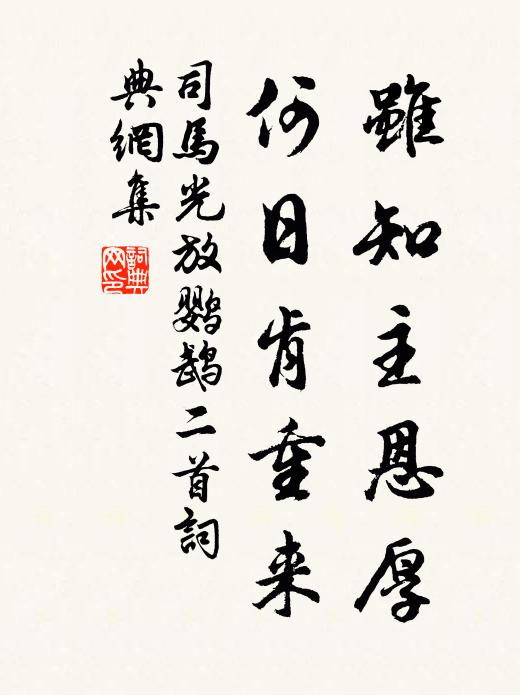 雖知主恩厚
何日肯重来
司馬光放鸚鵡二首詞
典網集
詞典
网印